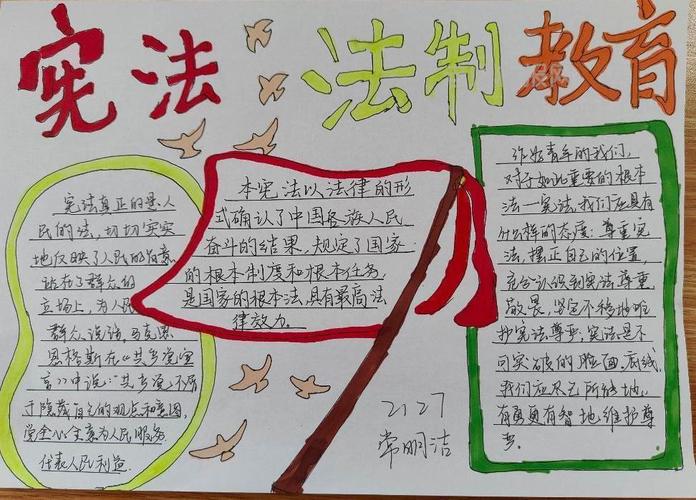 宪法 法制教育
宪法真正的是人
民的法,切切实实
地反映了人民的意愿
站在了群众的
立场上,为人民
群众说话,马克思
恩格斯在《共产党宣
言》中说:"共产党不屑
于隐蔽自己的观点和意图,
党全心全意为人民服务
代表人民利益.
本宪法以法律的形
式确认了中国各族人民
奋斗的结果,规定了国家
的根本制度和根本任务
是国家的根本法,具有最高法
律效力.
作为青年的我们,
对于如此重要的根本
法—宪法,我们应具有
什么样的态度:尊重宪
法,摆正自己的位置,
充分认识到宪法尊重
敬畏,坚定不移地维
护宪法尊严,宪法是不
可突破的脸面,底线,
我们应尽己所能地,
有勇更有智地维护尊
严.
2127
常明洁